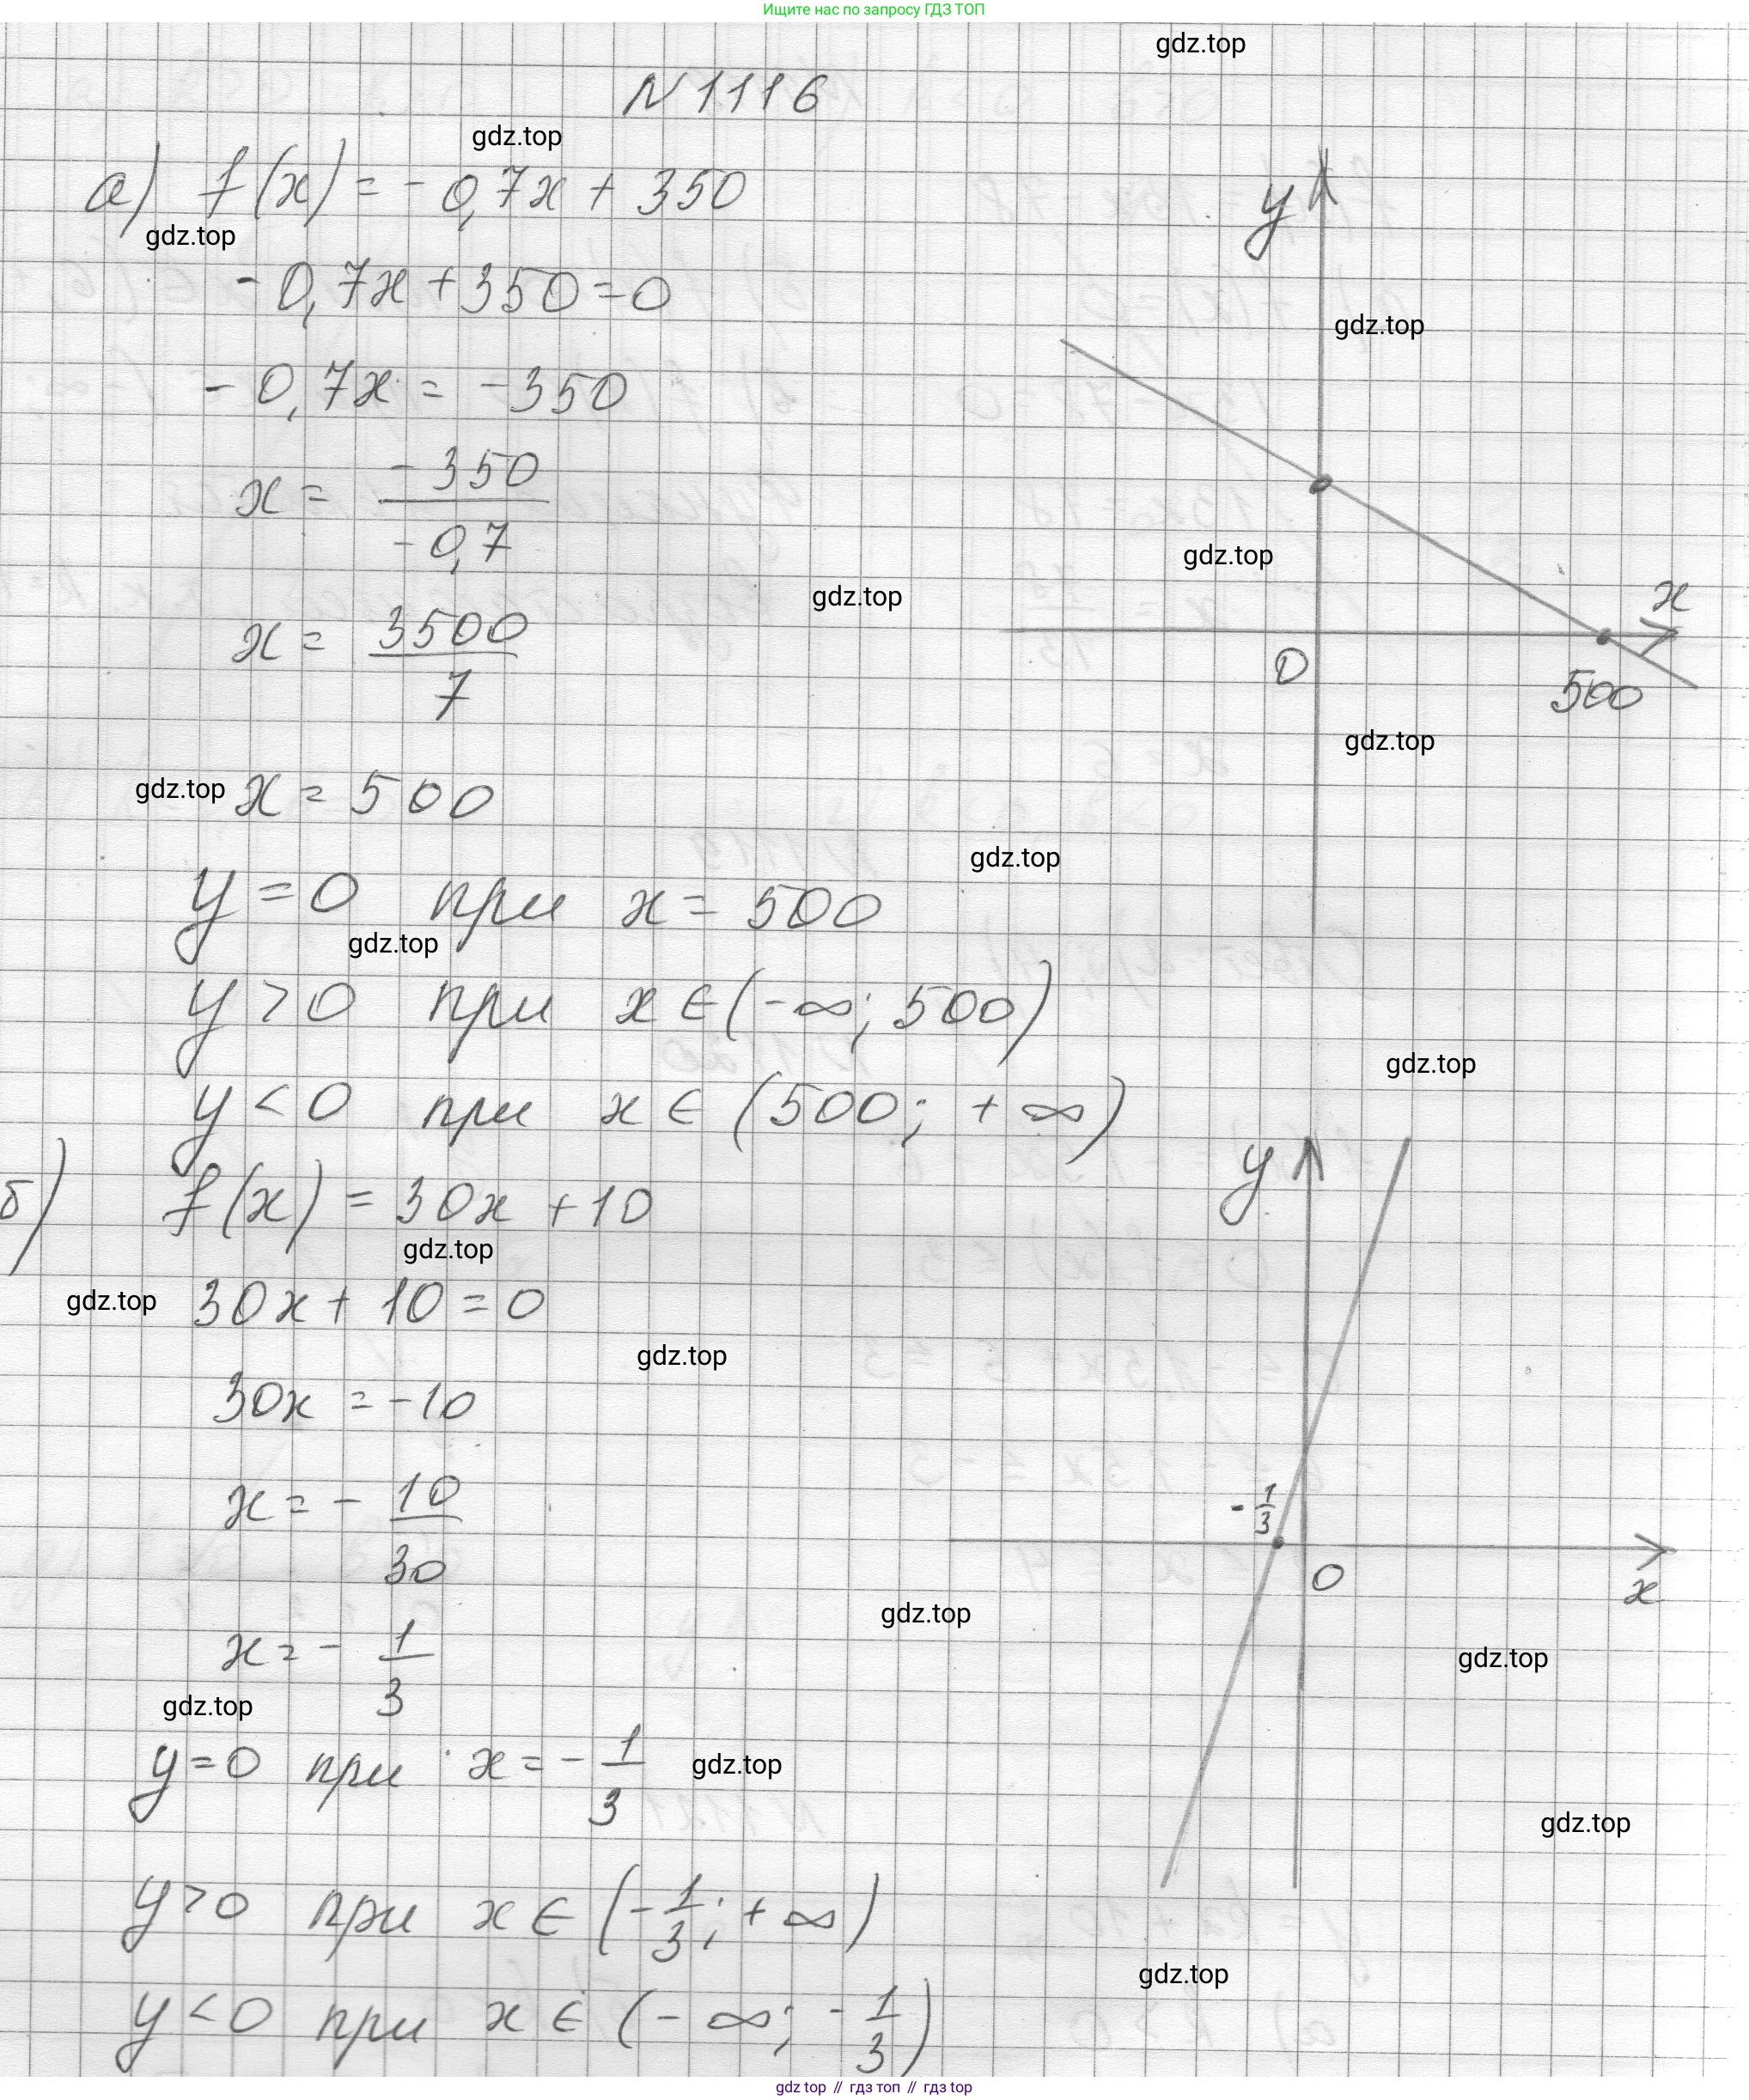 Ищите нас по запросу ГДЗ ТОП
gdz.top
N 1116
gdz.top
а) f(x) = - 0,7x + 350
gdz.top
y
- 0,7x + 350 = 0
gdz.top
- 0,7x = - 350
x = - 350 / - 0,7
gdz.top
gdz.top
x
x = 3500 / 7
0
500
gdz.top
gdz.top
x = 500
gdz.top
y = 0 при x = 500
gdz.top
y > 0 при x ∈ (- ∞; 500)
gdz.top
y < 0 при x ∈ (500; + ∞)
y
б) f(x) = 30x + 10
gdz.top
gdz.top
30x + 10 = 0
gdz.top
30x = - 10
x = - 10 / 30
- 1/3
0
x
gdz.top
x = - 1/3
gdz.top
gdz.top
y = 0 при x = - 1/3
gdz.top
gdz.top
y > 0 при x ∈ (- 1/3; + ∞)
gdz.top
y < 0 при x ∈ (- ∞; - 1/3)
gdz top // гдз топ // гдз top